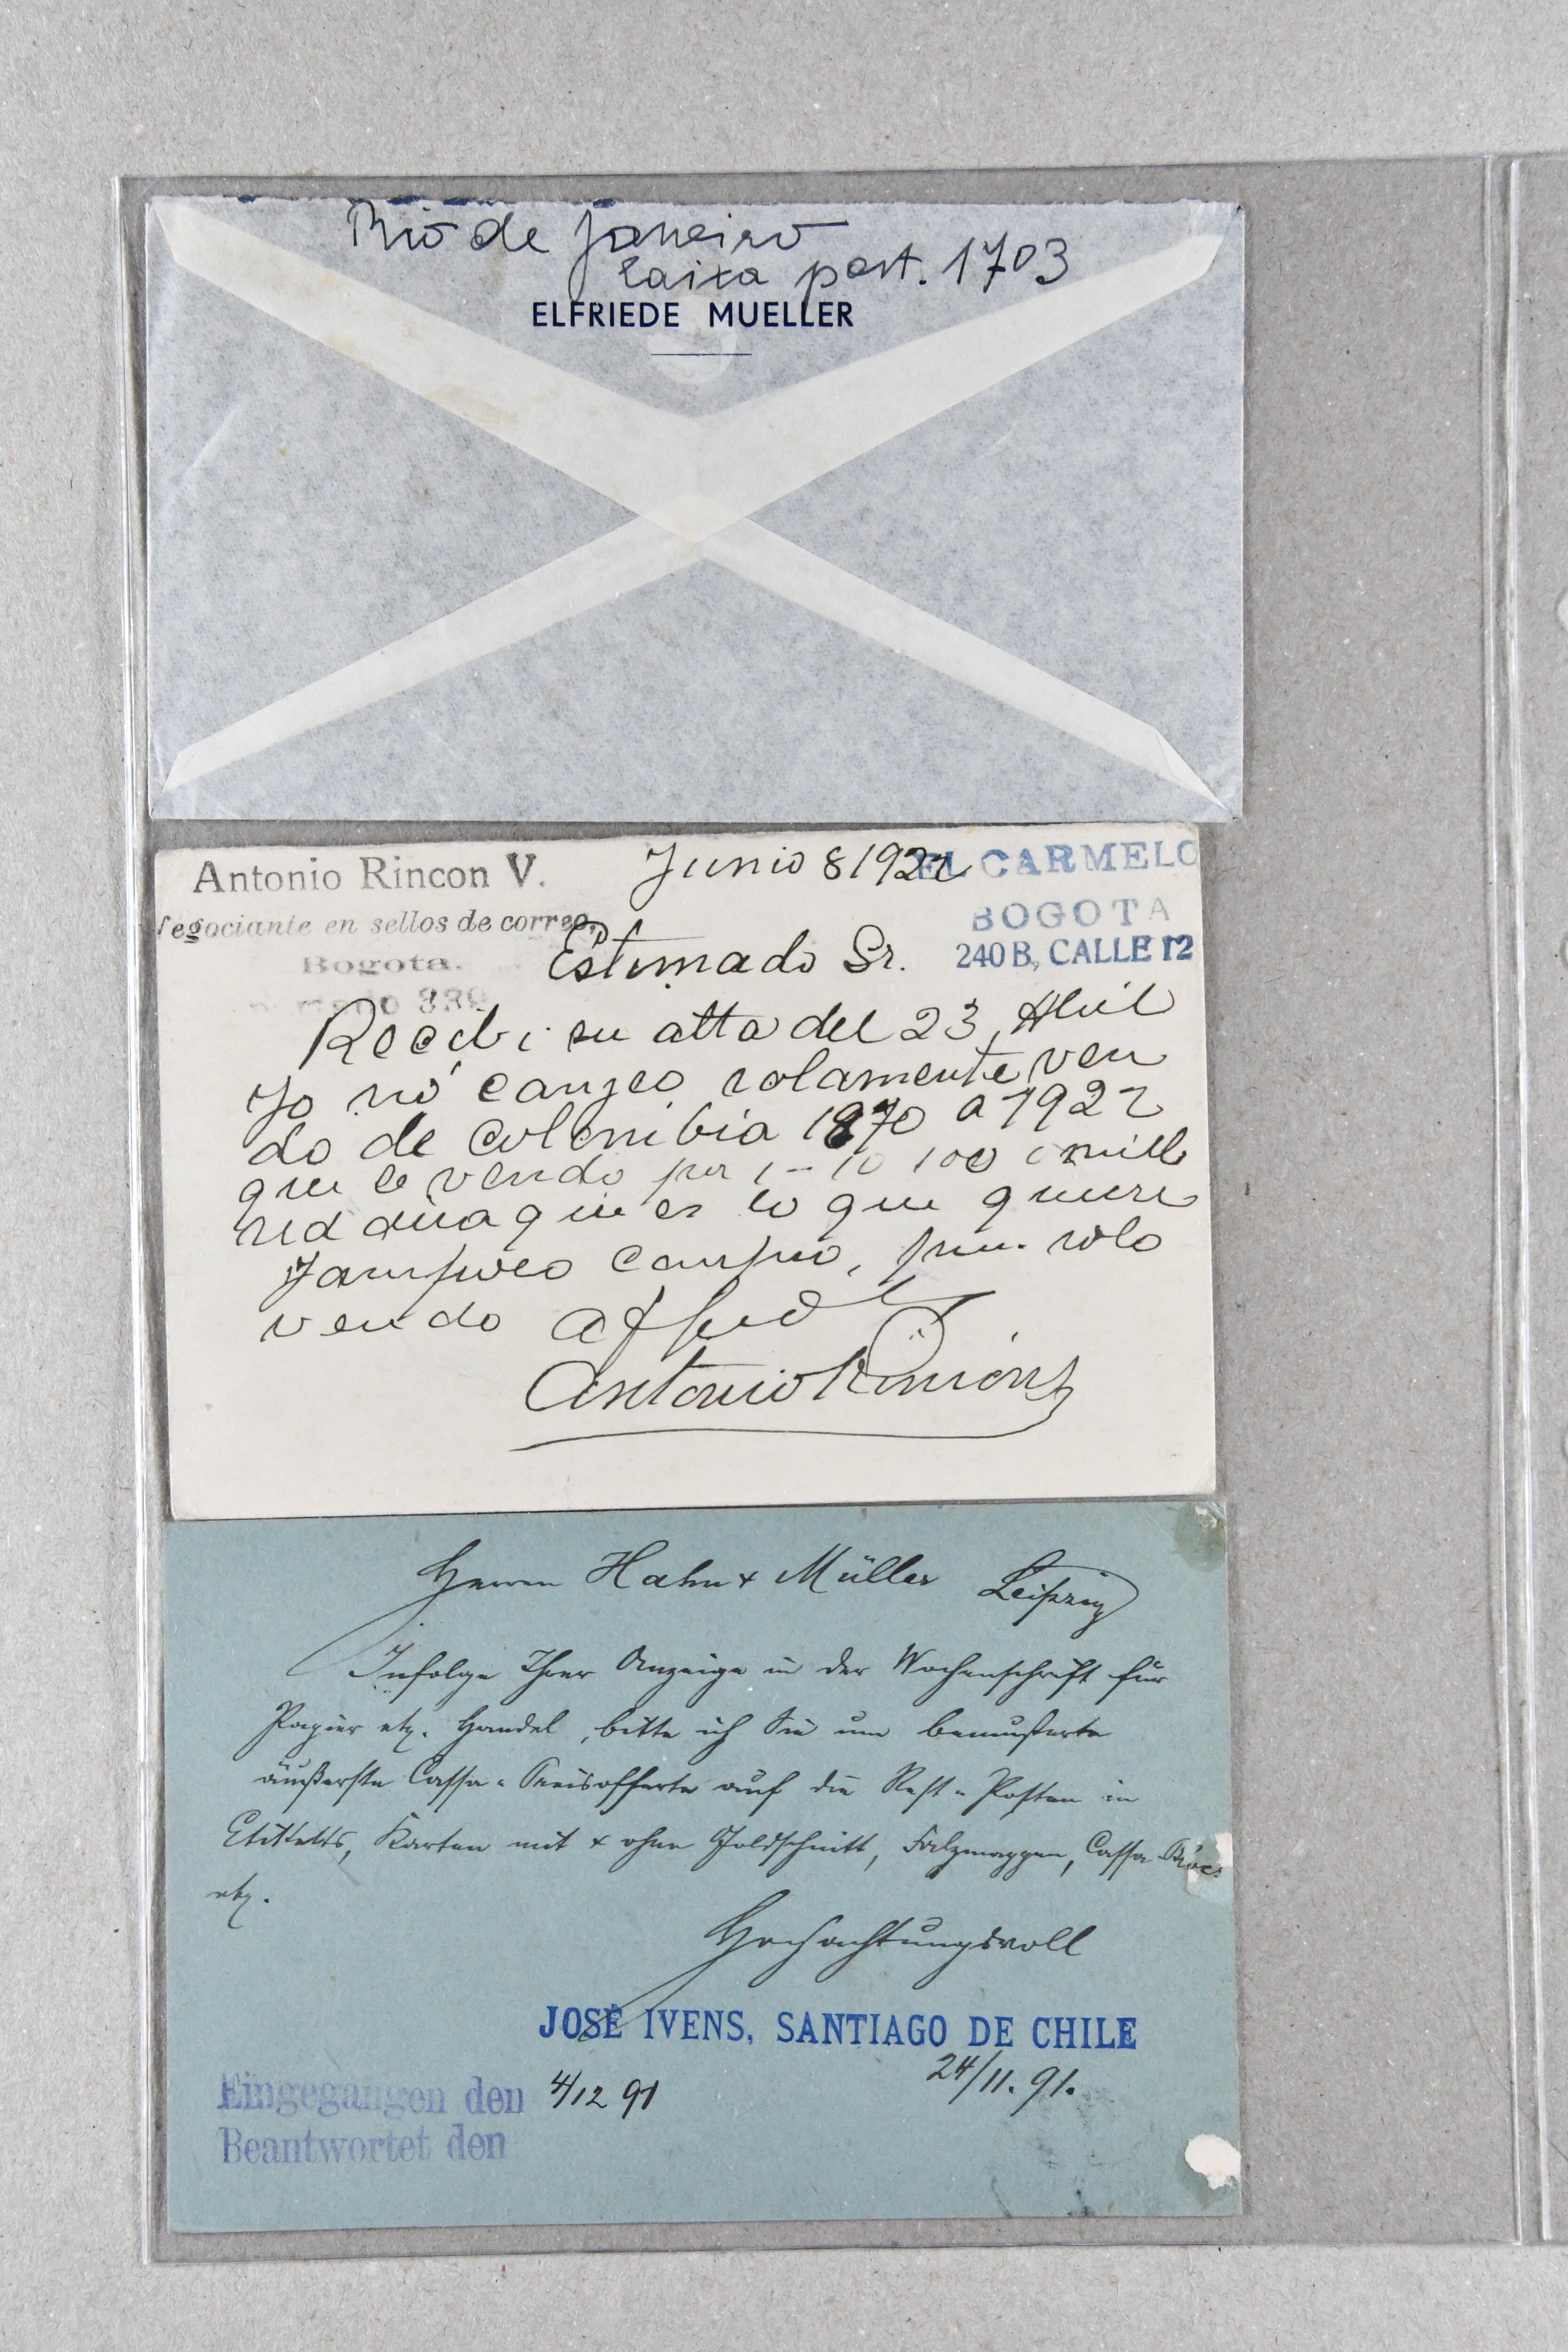 Rio de Janeiro
Caixa post. 1703
ELFRIEDE MUELLER
Antonio Rincon V.
Junio 8 1922
EL CARMELO
egociante en sellos de correo.
BOGOTA
Bogota.
Estimado Sr.
240 B, CALLE 12
Recibi su atta del 23 Abril
Yo no cangeo solamente ven
do de Colombia 1870 a 1922
que le vendo por 1 - 10 100 o mill
lo que quiere
Tampoco solo
vendo
Antonio Rincón
Herren Hahn & Müller Leipzig
Infolge Ihrer Anzeige in der Wochenschrift für
Papier etz. Handel, bitte ich Sie um bemusterte
äußerste Cassa-Preisofferte auf die Rest-Posten in
Etiketts, Karten mit & ohne Goldschnitt, Falzmappen, Cassa
etz.
Hochachtungsvoll
JOSÉ IVENS, SANTIAGO DE CHILE
24/11. 91.
Eingegangen den 4/12 91
Beantwortet den